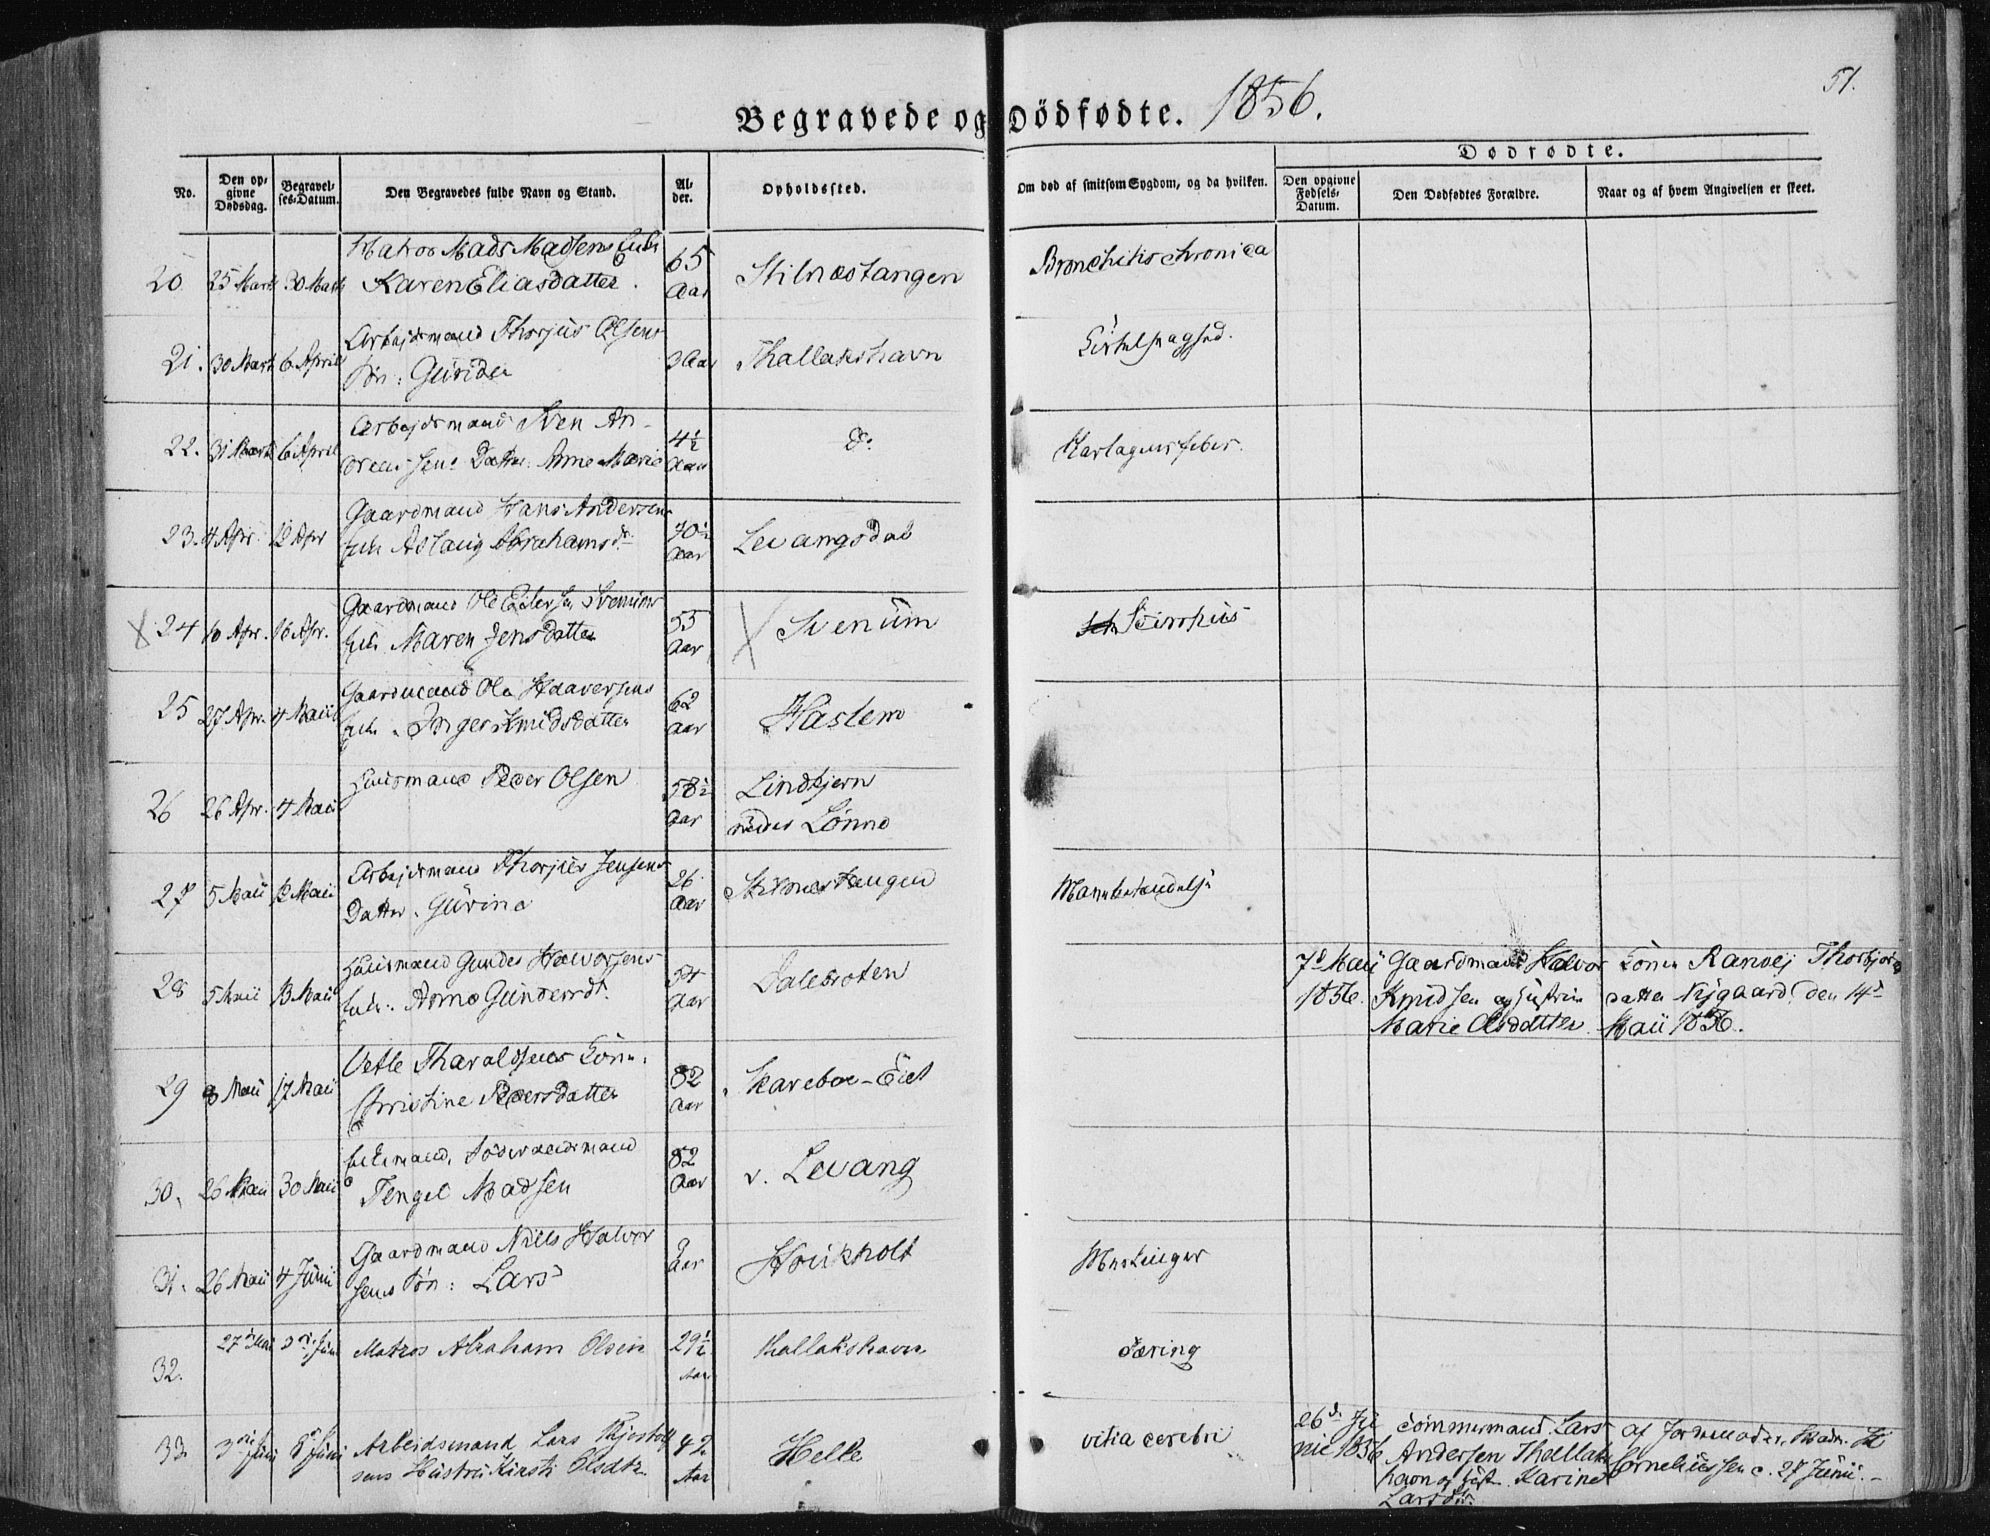 51.
Begravede og Dödfødte. 1856.
No.
Den opgivne Dødsdag.
Begravelses-Datum.
Den Begravedes fulde Navn og Stand.
Alder.
Opholdssted.
Om død af smitsom Sygdom, og da hvilken.
Dødfødte.
Den opgivne Fødsels-Datum.
Den Dødfødtes Forældre.
Naar og af hvem Angivelsen er skeet.
20 25 Marts 30 Marts Matros Mads Madsens Enke
Karen Eliasdatter. 65 Aar Stilnæstangen Bronchitis chronica
21. 30 Marts 6 April Arbejdsmand Thorjus Olsens
Søn: 3 Aar Thallakshavn
22. 31 Marts 6 April Arbejdsmand Sven An-
dreassens Datter: Anne Marie 4½ Aar do
23. 4 Apr. 12 Apr Gaardmand Hans Andersens
Aslaug Abrahamsdr. 70½ Aar Levangsdal
24 10 Apr. 16 Apr. Gaardmand Ole
Maren Jensdatter 55 Aar Stenum Scirrhus
25 27 Apr. 4 Maii Gaardmand Ole Haaversens
Inger Knudsdatter 62 Aar Haslem
26 26 Apr. 4 Maii Huusmand Peder Olsen 58½ Aar Lindtjern
under Lønne
27 5 Maii 12 Maii Arbejdsmand Thorjus Jensens
Datter. Gurine 26 Aar
28 5 Maii 13 Maii Huusmand Gunder Halvorsens
Enke. Anne Gundersdr. 54 Aar Dalebroten
7d Maii 1856. Gaardmand Halvor
Knudsen og Hustrue
Marie Olsdatter.
Konen Ranvej Thorbjørns
datter Nygaard, den 14d
Maii 1856.
29 8 Maii 17 Maii Vetle Tharaldsens Kone.
Christine Pedersdatter 82 Aar Skareboe-Eiet
30. 26 Maii 30 Maii
Tengel Madsen 82 Aar v. Levang
31. 26 Maii 4 Junii Gaardmand Niels Halvor
sens Søn: Lars Aar Houkholt Meslinger
32. 27 Maii Juni Matros Abraham Olsen 29½ Aar Thallakshavn Tæring
33 3die Juni 8de Juni Arbeidsmand Lars Kjøstolf
sens Hustru Kirsti Olsdtr. 42 Aar Helle vitia cerebri
26d. Ju
nii 1856 Tømmermand Lars
Andersen Thallaks
havn og Hust. Karine
Larsdtr.
af Jordmoder,
Corneliussen d. 27 Junii.